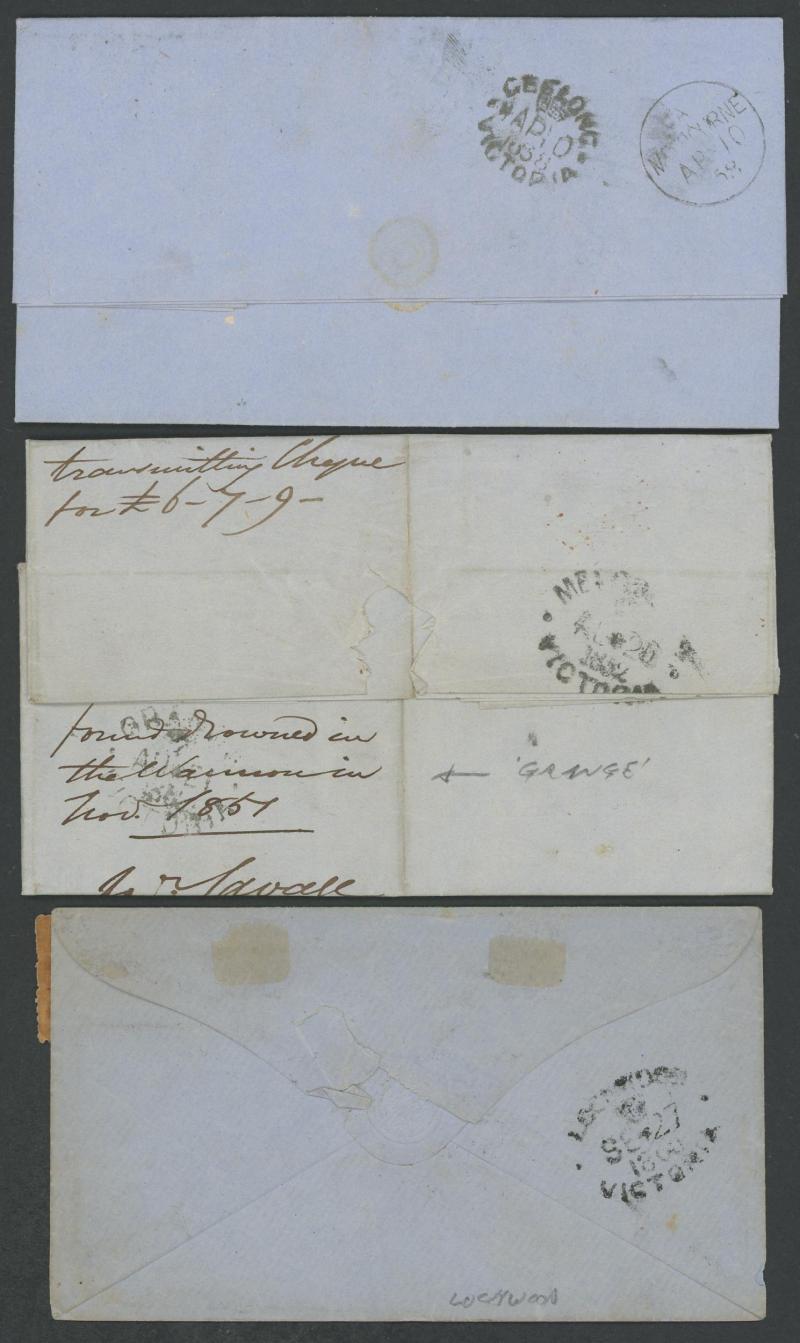 GEELONG
AP 10
1858
VICTORIA
MELBOURNE
AP 10
58
transmitting Cheque
for £6-7-9-
20
1852
VICTORIA
found drowned in
the Wannon in
Nov. 1851
'GRANGE'
Mr. Savage
LOCKWOOD
SE 27
VICTORIA
LOCKWOOD